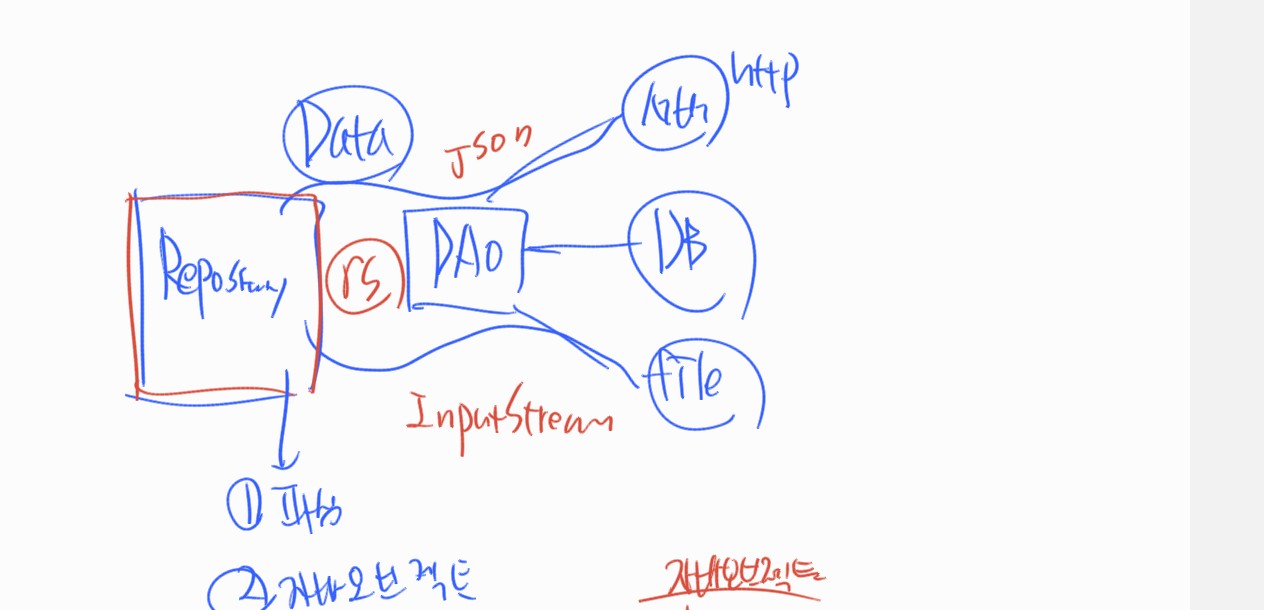 http
Data
Json
Repository
rs
DAO
DB
file
InputStream
① 파싱
② 자바오브젝트
자바오브젝트